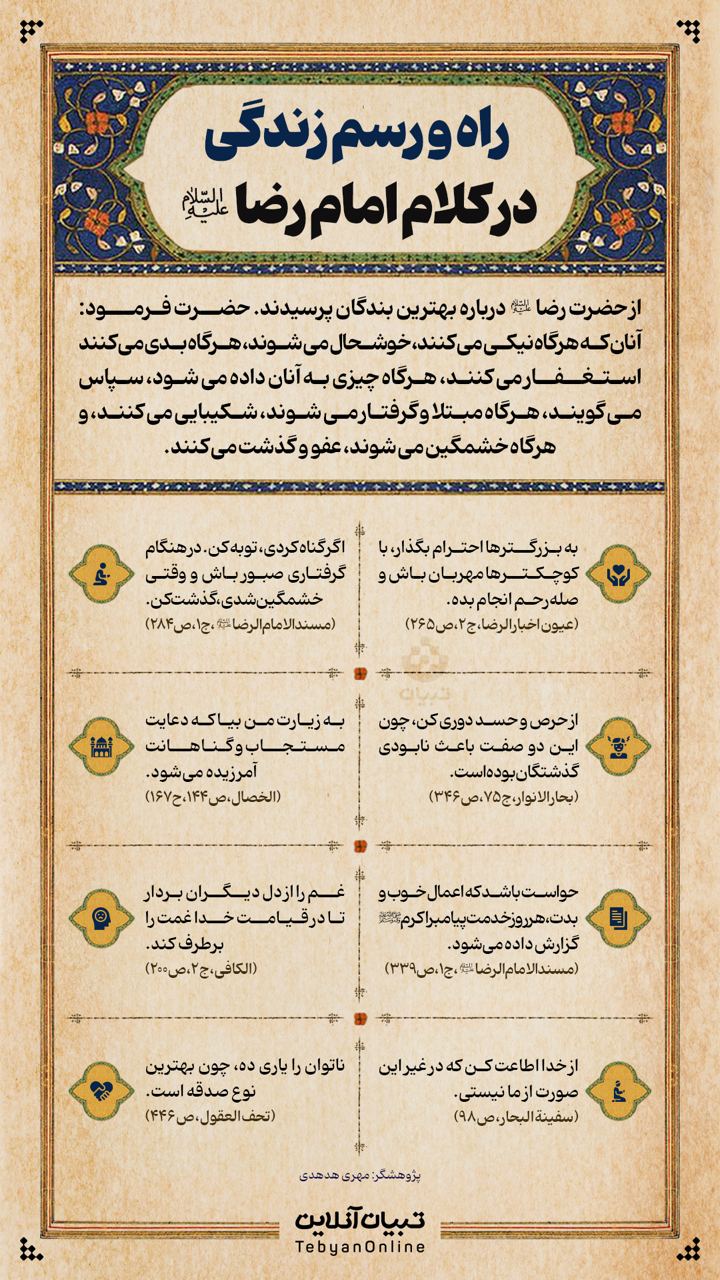 راه و رسم زندگی
در کلام امام رضا علیه‌السلام
از حضرت رضا علیه‌السلام درباره بهترین بندگان پرسیدند. حضرت فرمود:
آنان که هرگاه نیکی می‌کنند، خوشحال می‌شوند، هرگاه بدی می‌کنند
استغفار می‌کنند، هرگاه چیزی به آنان داده می شود، سپاس
می‌گویند، هرگاه مبتلا و گرفتار می‌شوند، شکیبایی می‌کنند، و
هرگاه خشمگین می‌شوند، عفو و گذشت می‌کنند.
به بزرگترها احترام بگذار، با
کوچکترها مهربان باش و
صله‌رحم انجام بده.
(عیون اخبارالرضا، ج۲، ص۲۶۵)
اگر گناه کردی، توبه کن. در هنگام
گرفتاری صبور باش و وقتی
خشمگین شدی، گذشت کن.
(مسندالامام‌الرضا علیه‌السلام، ج۱، ص۲۸۴)
از حرص و حسد دوری کن، چون
این دو صفت باعث نابودی
گذشتگان بوده است.
(بحارالانوار، ج۷۵، ص۳۴۶)
به زیارت من بیا که دعایت
مستجاب و گناهانت
آمرزیده می‌شود.
(الخصال، ص۱۴۴، ح۱۶۷)
حواست باشد که اعمال خوب و
بدت، هر روز خدمت پیامبر اکرم ﷺ
گزارش داده می‌شود.
(مسندالامام‌الرضا علیه‌السلام، ج۱، ص۳۳۹)
غم را از دل دیگران بردار
تا در قیامت خدا غمت را
برطرف کند.
(الکافی، ج۲، ص۲۰۰)
از خدا اطاعت کن که در غیر این
صورت از ما نیستی.
(سفینة البحار، ص۹۸)
ناتوان را یاری ده، چون بهترین
نوع صدقه است.
(تحف‌العقول، ص۴۴۶)
پژوهشگر: مهری هدهدی
تبیان آنلاین
TebyanOnline
تبیان